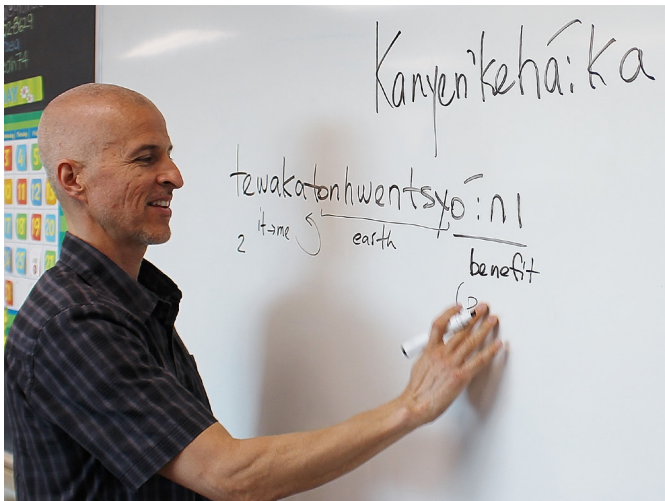 Kanyen'kehá:ka
tewakatonhwentsyó:ni
2 it→me earth
benefit